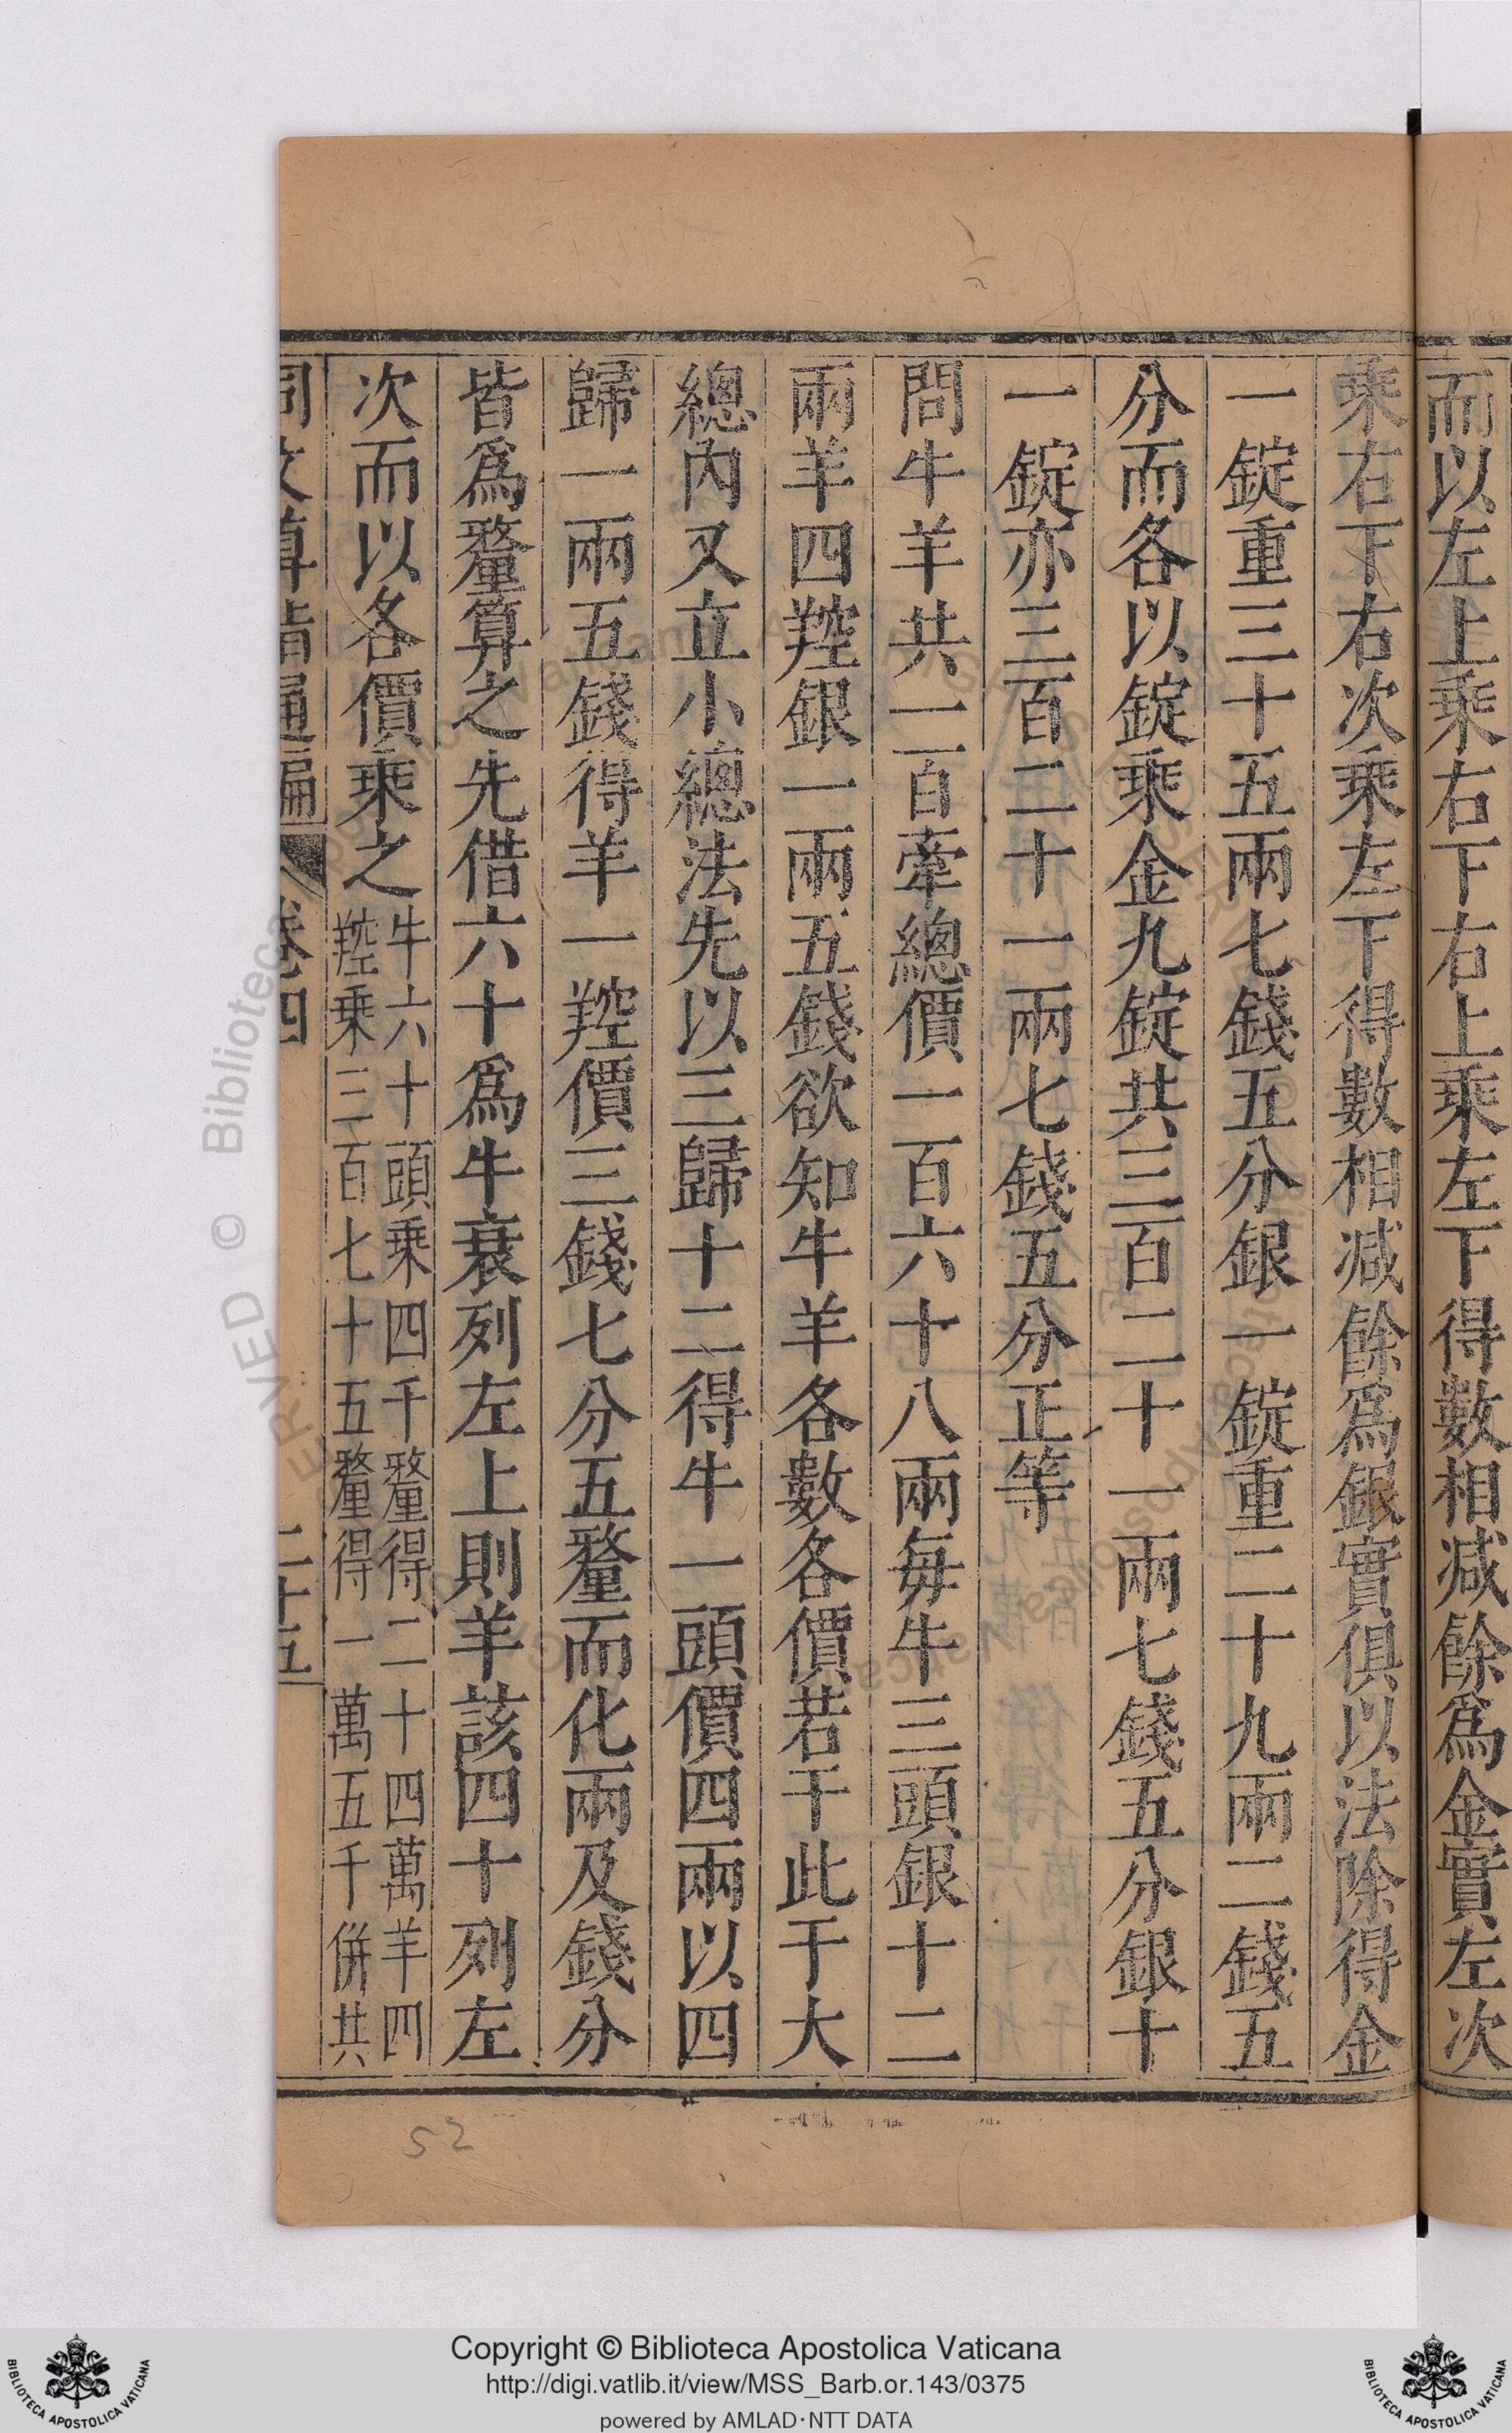 而以左上乘右下右上乘左下得數相减餘爲金實左次
乘右下右次乘左下得數相减餘爲銀實俱以法除得金
一錠重三十五兩七錢五分銀一錠重二十九兩二錢五
分而各以錠乘金九錠共三百二十一兩七錢五分銀十
一錠亦三百二十一兩七錢五分正等
問牛羊共一百牽總價一百六十八兩每牛三頭銀十二
兩羊四羫銀一兩五錢欲知牛羊各數各價若干此于大
總內又立小總法先以三歸十二得牛一頭價四兩以四
歸一兩五錢得羊一羫價三錢七分五釐而化兩及錢分
皆爲釐算之先借六十爲牛衰列左上則羊該四十列左
次而以各價乘之牛六十頭乘四千釐得二十四萬羊四
羫乘三百七十五釐得一萬五千併共
同文算指通編 卷四 二十五
52
Copyright © Biblioteca Apostolica Vaticana
http://digi.vatlib.it/view/MSS_Barb.or.143/0375
powered by AMLAD·NTT DATA
BIBLIOTECA APOSTOLICA VATICANA
BIBLIOTECA APOSTOLICA VATICANA